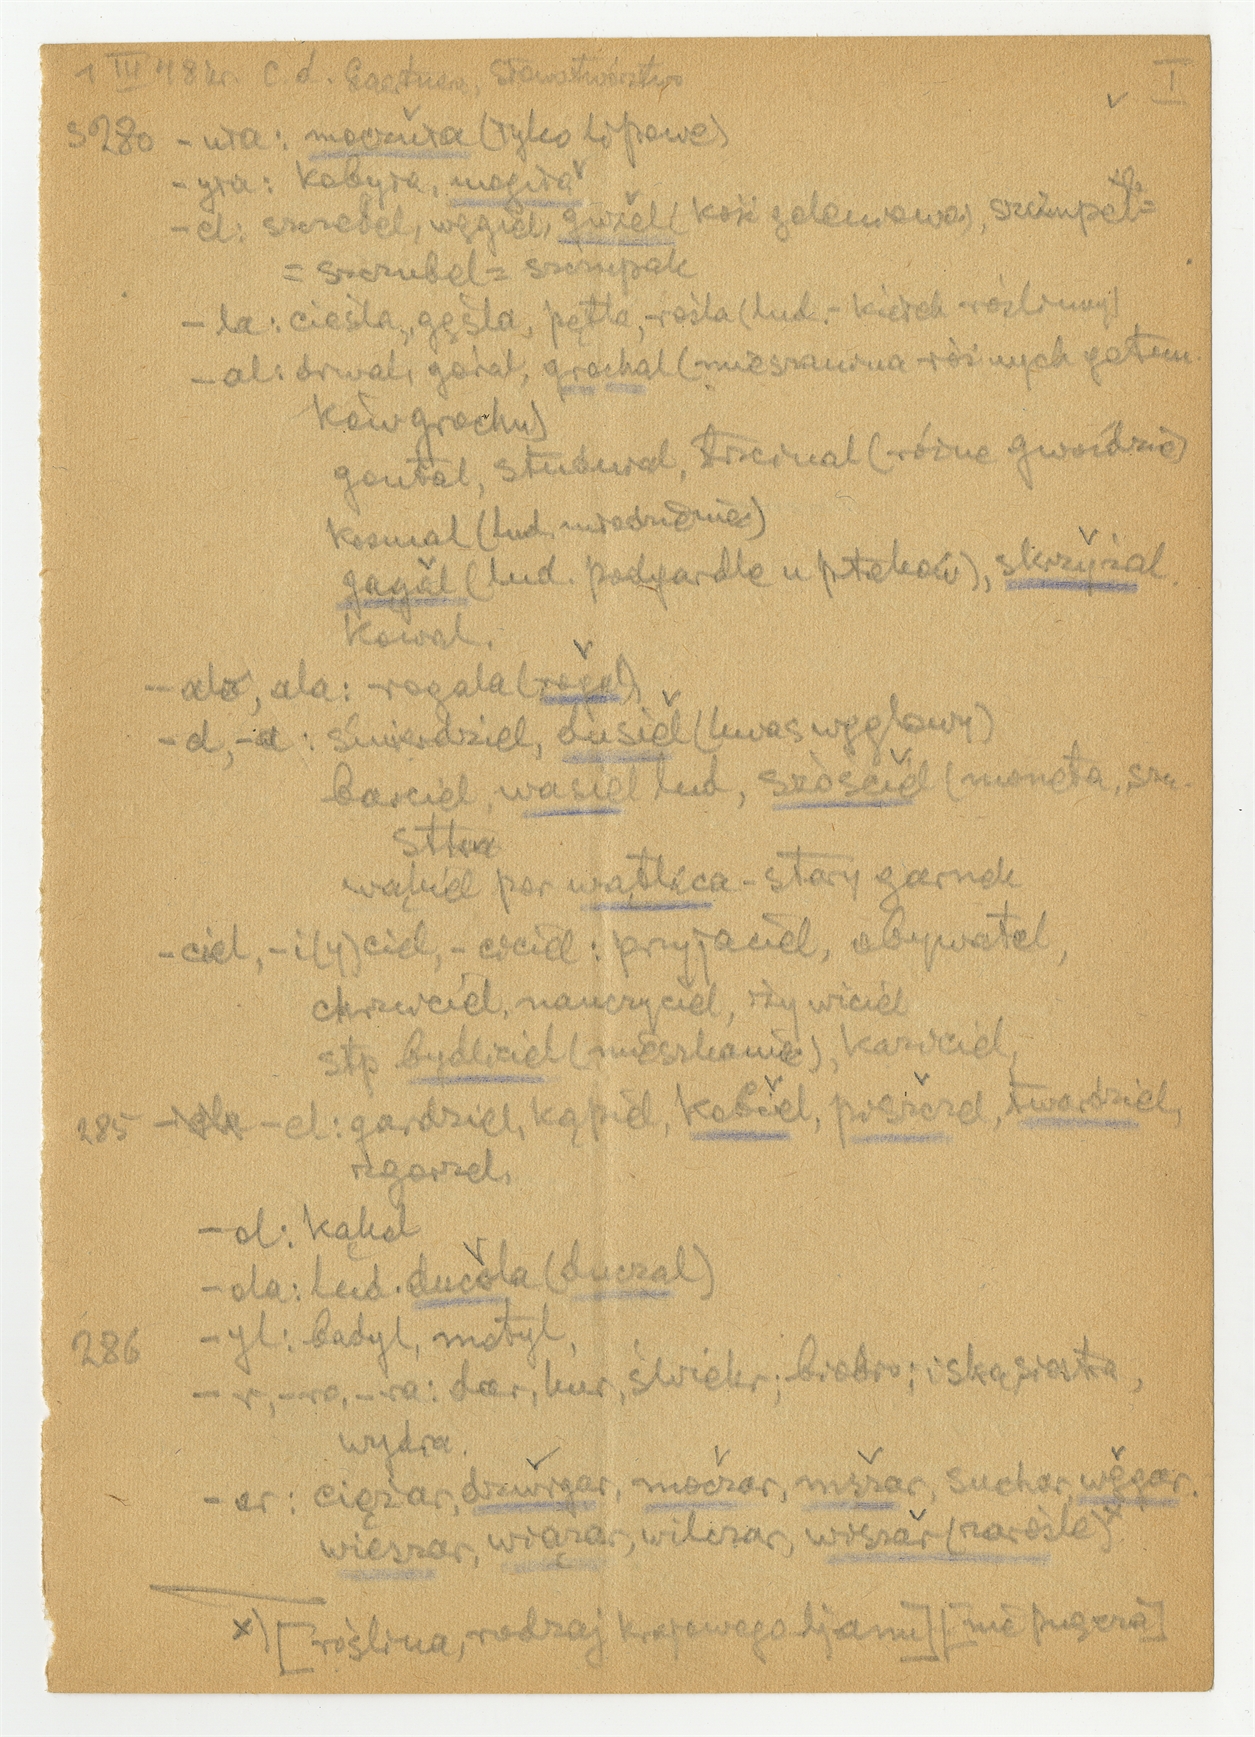 1 III 48 r. c.d. Gaertner, Słowotwórstwo I
s 280 -ura: moczura (łyko lipowe)
-yra: kobyra, mogira
-el: szczebel, węgiel, gwzel (kość goleniowa), szümpel=
= szczubel = szczupak
-la: cieśla, gęśla, pętla, rośla (lud. - kielich roślinny)
-al: drwal, góral, grochal (mieszanina różnych gatun-
ków grochu)
gontal, studwal, trzcinal (różne gwoździe)
kosmal (lud. miodzienie)
gagal (lud. podgardle u ptaków), skrzyżal.
kowal.
-alo, ala: rogala (rogal)
-el, -el: śmierdziel, dusiel (kwas węglowy)
barciel, wasiel lud, szóściel (moneta, sze-
stka
wąkiel por wątlica - stary garnek
-ciel, -i(y)ciel, -iciel: przyjaciel, obywatel,
chrzciciel, nauczyciel, żywiciel
stp bydliciel (mieszkaniec), kaziciel,
285 -el: gardziel, kąpiel, kobiel, piszczel, twardziel,
zgorzel.
-ol: kąkol
-ola: lud. ducola (duczal)
286 -yl: badyl, motyl,
-r, -ro, -ra: dar, kur, świekr; biodro; iskra, siostra,
wydra.
-ar: ciężar, dzwigar, moczar, mszar, suchar, węgar.
wieszar, wiązar, wilczar, wiszar (zarośle) x
x) [roślina, rodzaj krajowego lijanu] [nie puszcza]